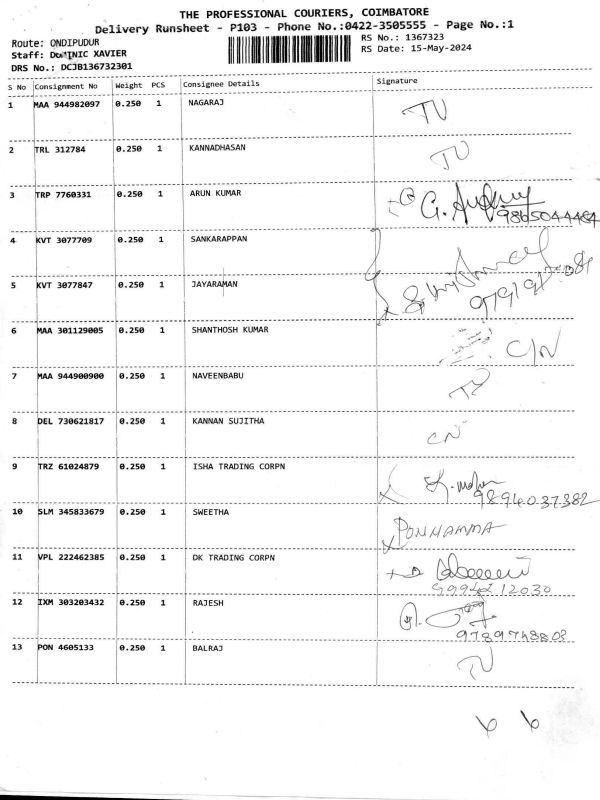 THE PROFESSIONAL COURIERS, COIMBATORE
Delivery Runsheet - P103 - Phone No.:0422-3505555 - Page No.:1
Route: ONDIPUDUR
RS No.: 1367323
Staff: DOMINIC XAVIER
RS Date: 15-May-2024
DRS No.: DCJB136732301
S No Consignment No Weight PCS Consignee Details Signature
1 MAA 944982097 0.250 1 NAGARAJ TU
2 TRL 312784 0.250 1 KANNADHASAN TU
3 TRP 7760331 0.250 1 ARUN KUMAR
4 KVT 3077709 0.250 1 SANKARAPPAN
5 KVT 3077847 0.250 1 JAYARAMAN
6 MAA 301129005 0.250 1 SHANTHOSH KUMAR C/N
7 MAA 944900900 0.250 1 NAVEENBABU
8 DEL 730621817 0.250 1 KANNAN SUJITHA CN
9 TRZ 61024879 0.250 1 ISHA TRADING CORPN
9894037382
10 SLM 345833679 0.250 1 SWEETHA PONNAMMA
11 VPL 222462385 0.250 1 DK TRADING CORPN
12 IXM 303203432 0.250 1 RAJESH
9789748808
13 PON 4605133 0.250 1 BALRAJ TU